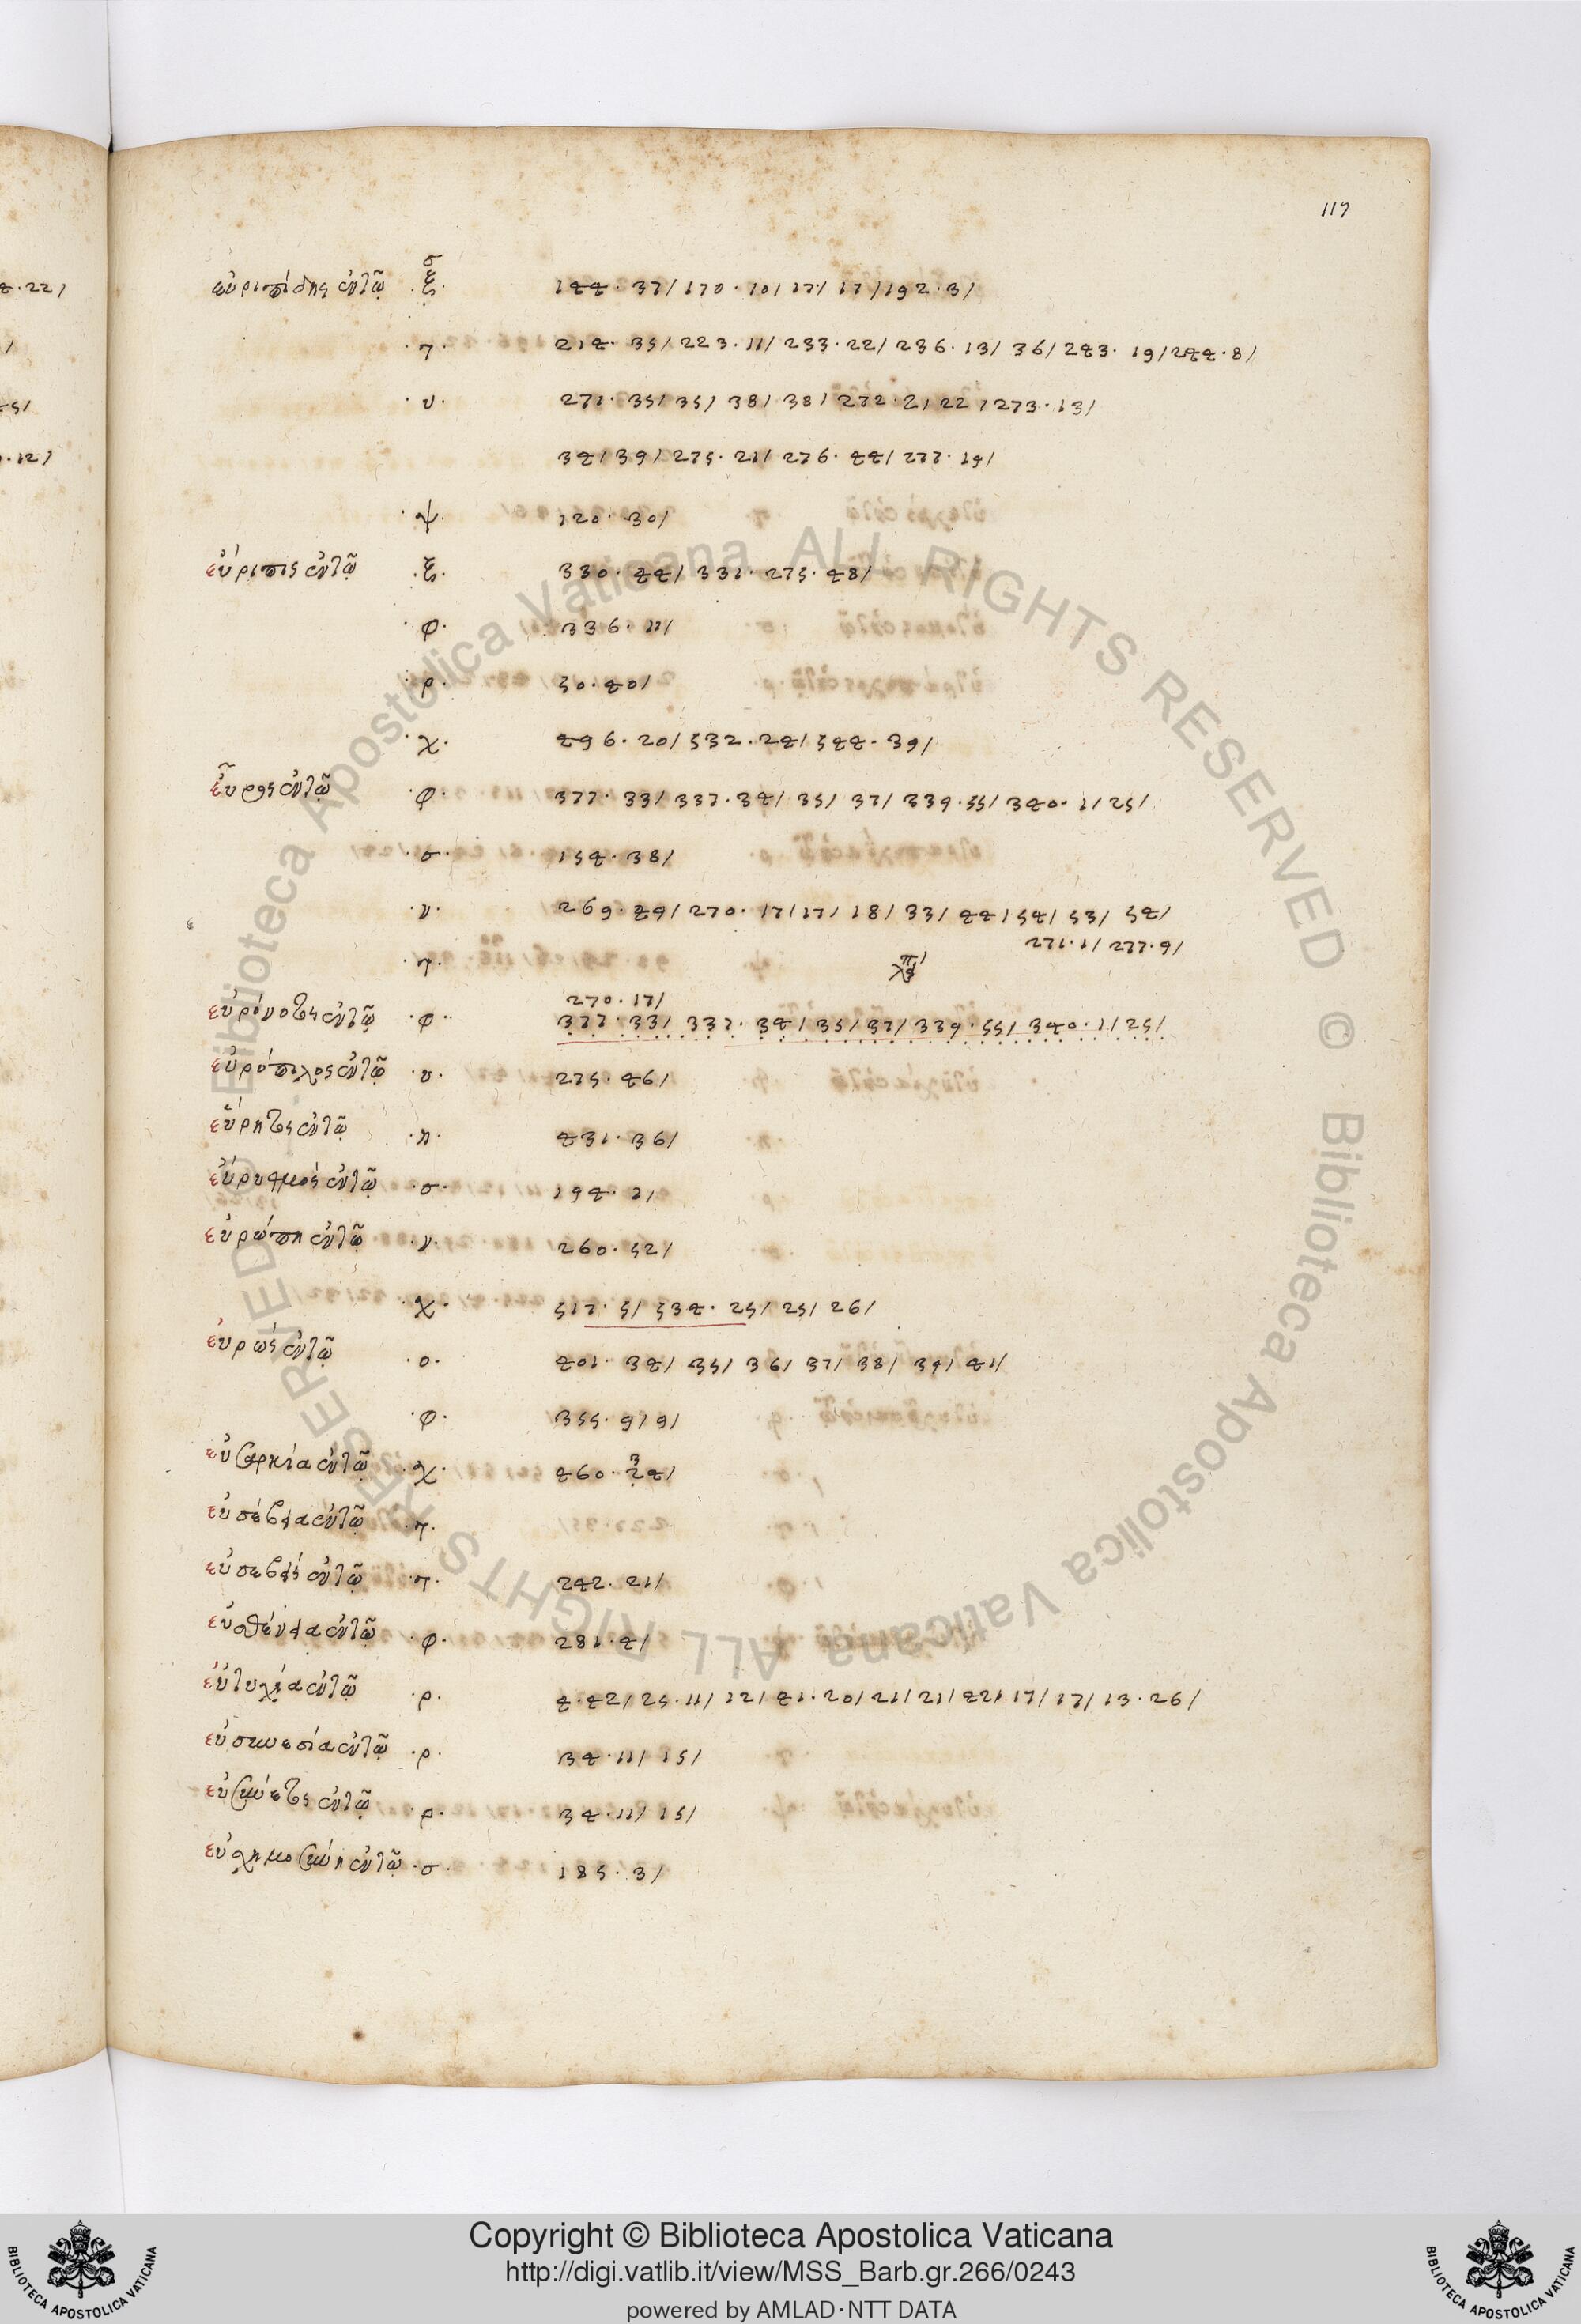 117
εὐριπίδης ἐν τῷ ·ξ· σ 144·37/170·10/17/17/192·3/
·τ· 214·35/223·11/233·22/236·13/36/243·19/244·8/
·υ· 271·35/35/38/38/272·2/22/273·13/
34/39/275·21/276·44/277·19/
·ψ· 120·30/
εὔριπος ἐν τῷ ·ξ· 330·44/331·275·48/
·φ· 336·11/
·ρ· 50·40/
·χ· 496·20/532·24/544·39/
εὖρος ἐν τῷ ·φ· 377·33/337·34/35/37/339·55/340·1/25/
·σ· 154·38/
·ν· 269·49/270·17/17/18/33/44/54/53/54/
271·1/277·9/
·τ·
270·17/
εὐρόνοτος ἐν τῷ ·φ· 377·33/337·34/35/37/339·55/340·1/25/
εὐρύπυλος ἐν τῷ ·υ· 275·46/
εὕρητος ἐν τῷ ·π· 431·36/
εὔρυθμος ἐν τῷ ·σ· 194·2/
εὐρώπη ἐν τῷ ·ν· 260·52/
·χ· 517·5/534·25/25/26/
εὐρώς ἐν τῷ ·ο· 401·34/35/36/37/38/39/41/
·φ· 355·9/9/
εὐσαρκία ἐν τῷ ·χ· 460·24/ 3
εὐσέβεια ἐν τῷ ·τ·
εὐσεβής ἐν τῷ ·τ· 242·21/
εὐσθένεια ἐν τῷ ·φ· 281·4/
εὐτυχία ἐν τῷ ·ρ· 4·42/25·11/12/41·20/21/21/42/17/17/13·26/
εὐσυνεσία ἐν τῷ ·ρ· 34·11/15/
εὐσύνετος ἐν τῷ ·ρ· 34·11/15/
εὐσχημοσύνη ἐν τῷ ·σ· 185·3/
4·22/
/
45/
·12/
© Biblioteca Apostolica Vaticana ALL RIGHTS RESERVED © Biblioteca Apostolica Vaticana ALL RIGHTS RESERVED
Copyright © Biblioteca Apostolica Vaticana
http://digi.vatlib.it/view/MSS_Barb.gr.266/0243
powered by AMLAD·NTT DATA
BIBLIOTECA APOSTOLICA VATICANA
BIBLIOTECA APOSTOLICA VATICANA